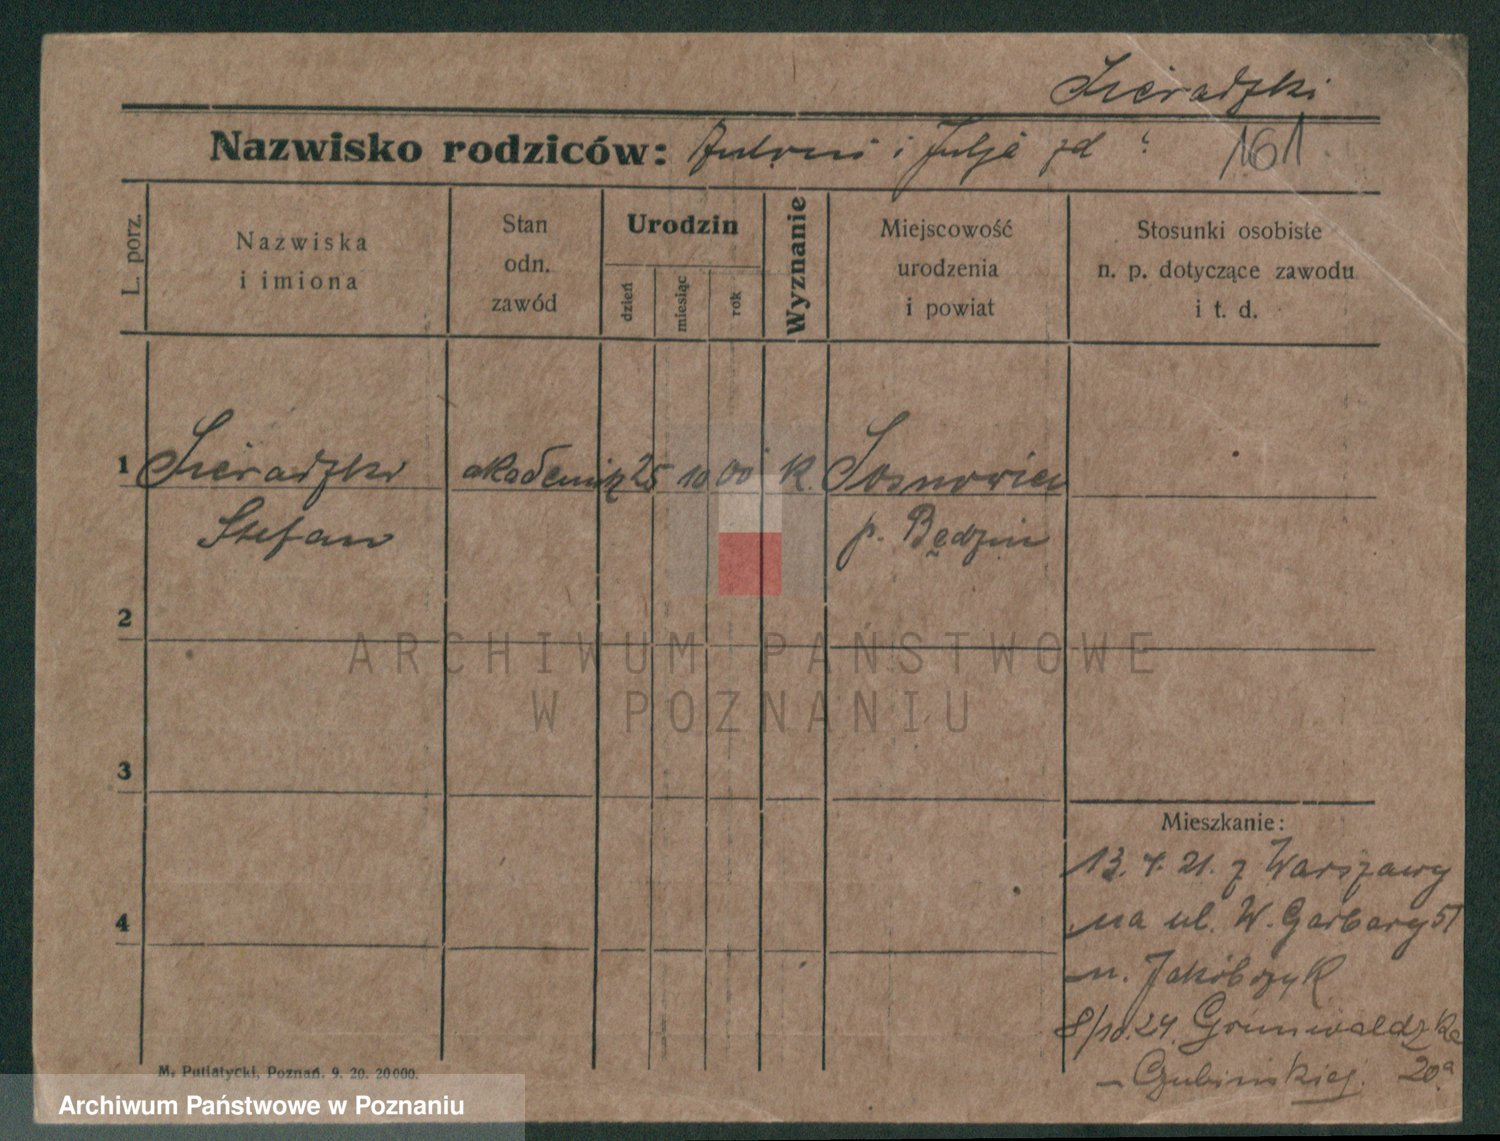 Sieradzki
Nazwisko rodziców: i Julja zd ?
161
L. porz.
Nazwiska
i imiona
Stan
odn.
zawód
Urodzin
dzień
miesiąc
rok
Wyznanie
Miejscowość
urodzenia
i powiat
Stosunki osobiste
n. p. dotyczące zawodu
i t. d.
1 Sieradzki akademik 25 10 00 k. Sosnowiec
Stefan p. Będzin
2
ARCHIWUM PAŃSTWOWE
W POZNANIU
3
Mieszkanie:
13. 4. 21. z Warszawy
4
na ul. W. Garbary 51
u. Jakóbczyk
8/10.24. Grunwaldzka
– Czubińskiej. 20a
M. Putiatycki, Poznań. 9. 20. 20000.
Archiwum Państwowe w Poznaniu